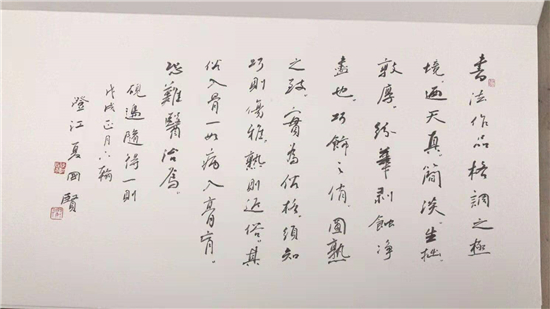 書法作品格調之極
境，迺天真，簡淡，生拙，
敦厚，紛華剥蝕净
盡也。巧飾之俏，圓熟
之致，實為俗格，須知
巧則傷雅，熟則近俗。其
俗入骨一如病入膏肓，
恐難醫治焉。
硯邊賸得一則
戊戌正月六翰
澄江夏賢